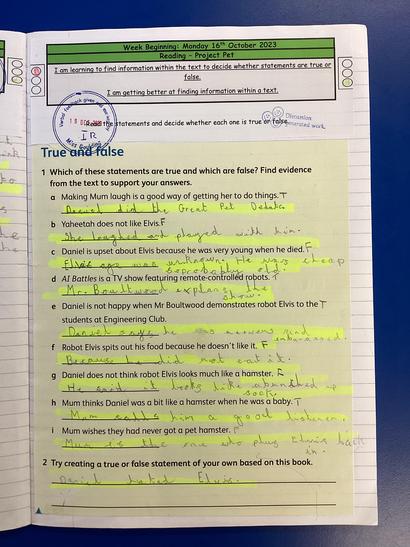 Week Beginning: Monday 16th October 2023
Reading – Project Pet
I am learning to find information within the text to decide whether statements are true or
false.
I am getting better at finding information within a text.
Read the statements and decide whether each one is true or false.
Discussion
generated work
Verbal feedback given
IR
True and false
1 Which of these statements are true and which are false? Find evidence
from the text to support your answers.
a Making Mum laugh is a good way of getting her to do things. T
Daniel did the Great Pet Debate.
b Yaheetah does not like Elvis. F
She laughed and played with him.
c Daniel is upset about Elvis because he was very young when he died. F
Elvis age was unknown. He was cheap
so probably old.
d AI Battles is a TV show featuring remote-controlled robots. T
Mr. Boultwood explains the
show.
e Daniel is not happy when Mr Boultwood demonstrates robot Elvis to the T
students at Engineering Club.
Daniel says he was nervous and
embarrassed.
f Robot Elvis spits out his food because he doesn't like it. F
Because he did not eat it.
g Daniel does not think robot Elvis looks much like a hamster. F
He said it looks like a up
sock.
h Mum thinks Daniel was a bit like a hamster when he was a baby. T
Mum calls him a good listener.
i Mum wishes they had never got a pet hamster. F
Mum is the one who plug Elvis back
in.
2 Try creating a true or false statement of your own based on this book.
Daniel hated Elvis.